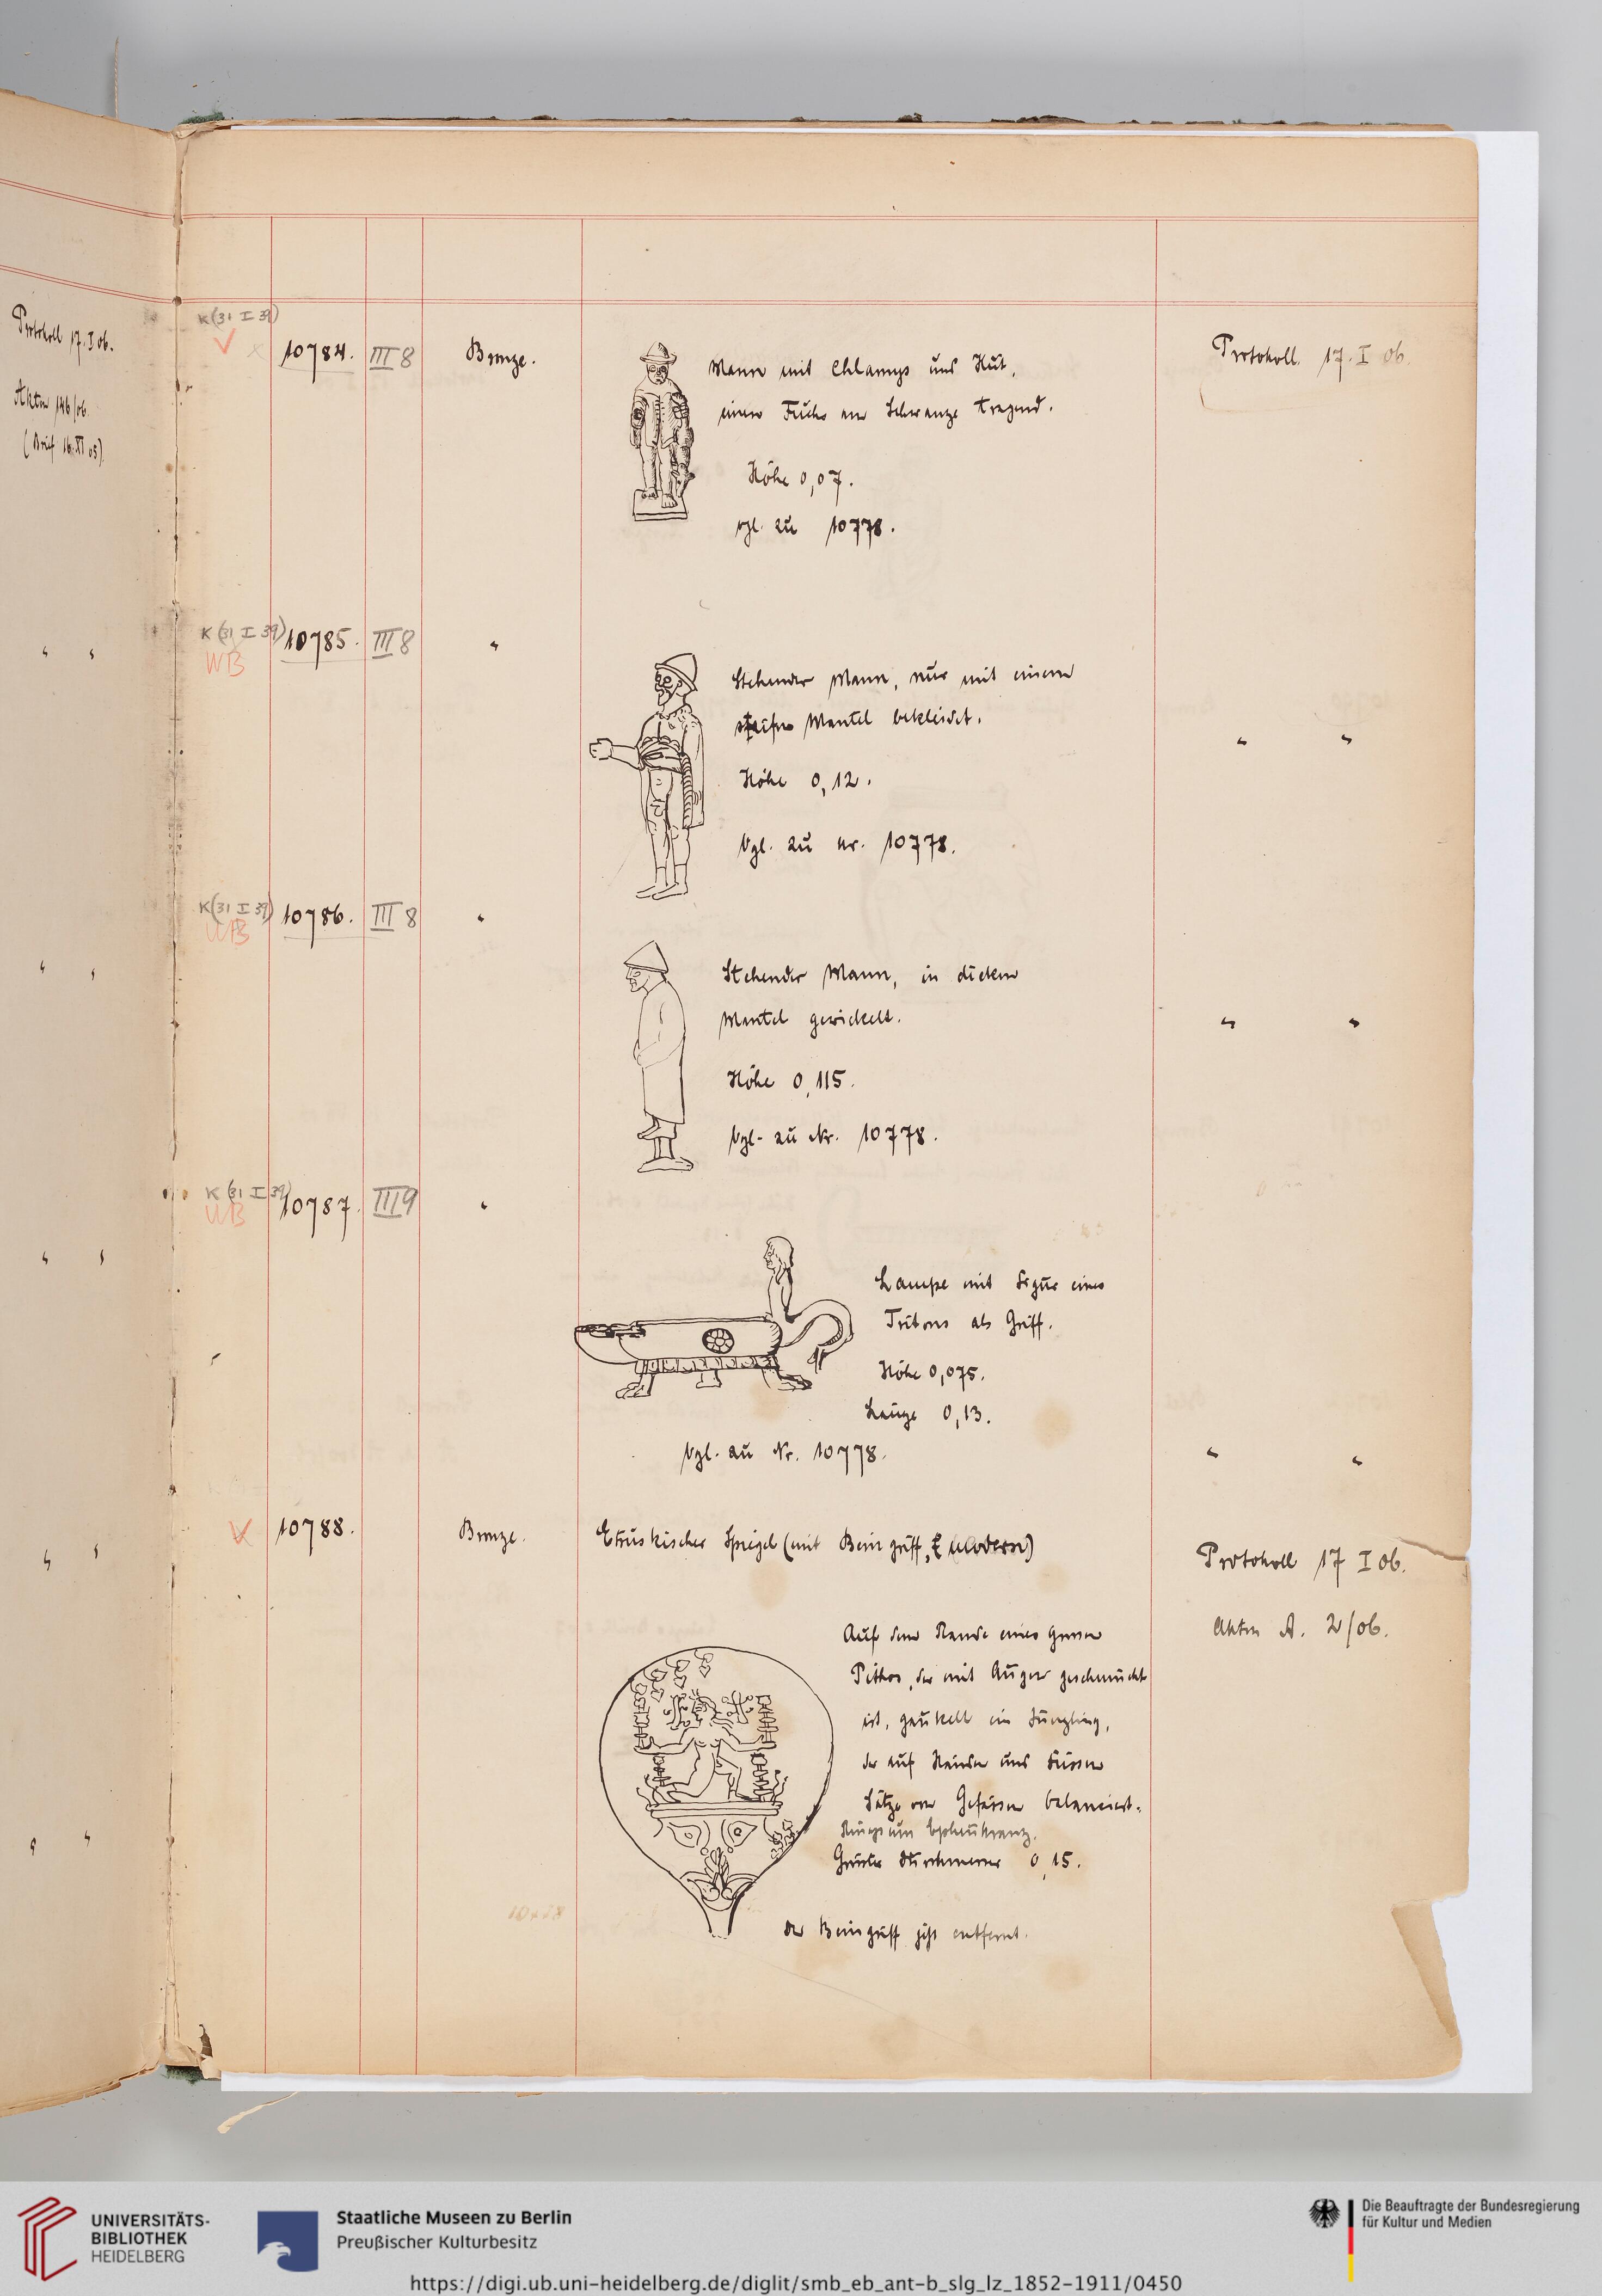 Protokoll 17. I 06.
Akten 146/06.
(Brief 16. XI 05)
K (31 I 39)
10784. III 8 Bronze.
Mann mit Chlamys und Hut,
einen Fuchs am Schwanze tragend.
Höhe 0,07.
vgl. zu 10778.
Protokoll. 17. I 06.
K (31 I 39)
WB
10785. III 8 "
Stehender Mann, nur mit einem
steifen Mantel bekleidet.
Höhe 0,12.
Vgl. zu nr. 10778.
" "
K (31 I 39)
WB
10786. III 8 "
Stehender Mann, in dicken
Mantel gewickelt.
Höhe 0,115.
Vgl. zu Nr. 10778.
" "
K (31 I 39)
WB
10787. III 9 "
Lampe mit Figur eines
Tritons als Griff.
Höhe 0,075.
Länge 0,13.
Vgl. zu Nr. 10778.
" "
10788. Bronze.
Etruskischer Spiegel (mit Beingriff, modern)
Auf dem Rande eines grossen
Pithos, der mit Augen geschmückt
ist, gaukelt ein Jüngling,
der auf Händen und Füssen
Sätze von Gefässen balanciert.
Ringsum Epheukranz.
Grösster Durchmesser 0,15.
Der Beingriff jetzt entfernt.
Protokoll 17 I 06.
Akten A. 2/06.
UNIVERSITÄTS-
BIBLIOTHEK
HEIDELBERG
Staatliche Museen zu Berlin
Preußischer Kulturbesitz
Die Beauftragte der Bundesregierung
für Kultur und Medien
https://digi.ub.uni-heidelberg.de/diglit/smb_eb_ant-b_slg_lz_1852-1911/0450